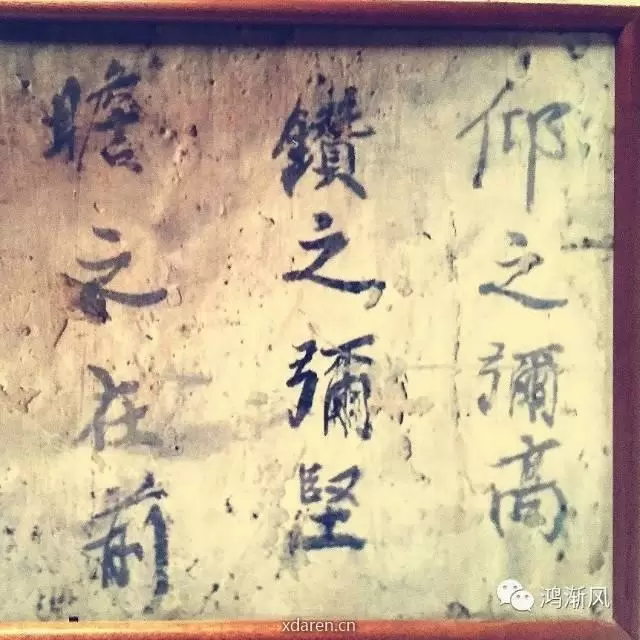 仰之彌高
鑽之彌堅
瞻之在前
鸿渐风
xdaren.cn